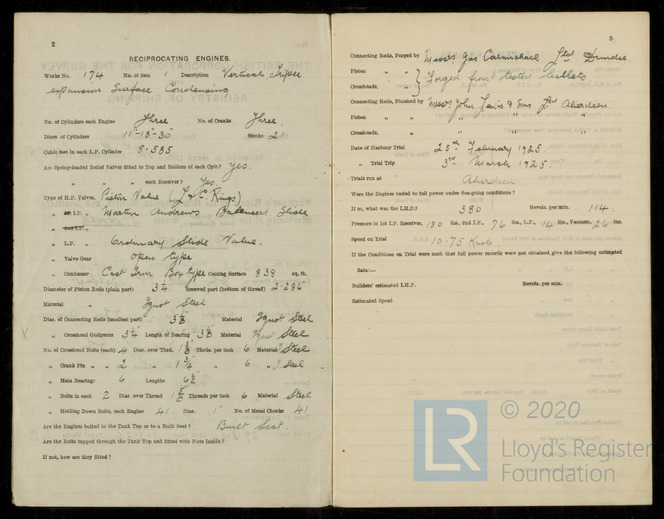 2
RECIPROCATING ENGINES.
Works No. 174 No. of sets 1 Description Vertical, Triple
expansion Surface Condensing
No. of Cylinders each Engine Three No. of Cranks Three.
Diars of Cylinders 11"-18"-30" Stroke 21
Cubic feet in each L.P. Cylinder 8.585
Are Spring-loaded Relief Valves fitted to Top and Bottom of each Cylr.? Yes.
" " " each Receiver? Yes
Type of H.P. Valves, Piston Valve (L & C. Rings)
" I.P. " Martin Andrews Balanced Slide
" L.P. " Ordinary Slide Valve.
" Valve Gear Open type
" Condenser Cast Iron Box type Cooling Surface 839 sq. ft.
Diameter of Piston Rods (plain part) 3¼ Screwed part (bottom of thread) 2.286
Material " Ingot Steel
Diar. of Connecting Rods (smallest part) Material Ingot Steel
" Crosshead Gudgeons 3¼ Length of Bearing Material Ingot Steel
No. of Crosshead Bolts (each) 4 Diar. over Thrd. Thrds. per inch 6 Material Steel
" Crank Pin " " 2 " 1¾ " 6 " I. Steel
" Main Bearings 6 Lengths 6½"
" Bolts in each 2 Diar. over Thread Threads per inch 6 Material Steel
" Holding Down Bolts, each Engine 41 Diar. 1" No. of Metal Chocks 41
Are the Engines bolted to the Tank Top or to a Built Seat? Built Seat.
Are the Bolts tapped through the Tank Top and fitted with Nuts Inside?
If not, how are they fitted?
Connecting Rods, Forged by Messrs Jas Carmichael Ltd Dundee.
Piston " " Forged from tested billets
Crossheads, "
Connecting Rods, Finished by Messrs John Lewis & Sons Ltd Aberdeen
Piston " " " " "
Crossheads, " " " "
Date of Harbour Trial 25th February 1925
" Trial Trip 3rd March 1925.
Trials run at Aberdeen
Were the Engines tested to full power under Sea-going conditions?
If so, what was the I.H.P.? 380 Revols. per min. 114.
Pressure in 1st I.P. Receiver, 180 lbs., 2nd I.P., 76 lbs., L.P., 14 lbs., Vacuum, 26 ins.
Speed on Trial 10.75 Knots
If the Conditions on Trial were such that full power records were not obtained give the following estimated
data:—
Builders' estimated I.H.P. Revols. per min.
Estimated Speed
© 2020
LR
Lloyd's Register
Foundation